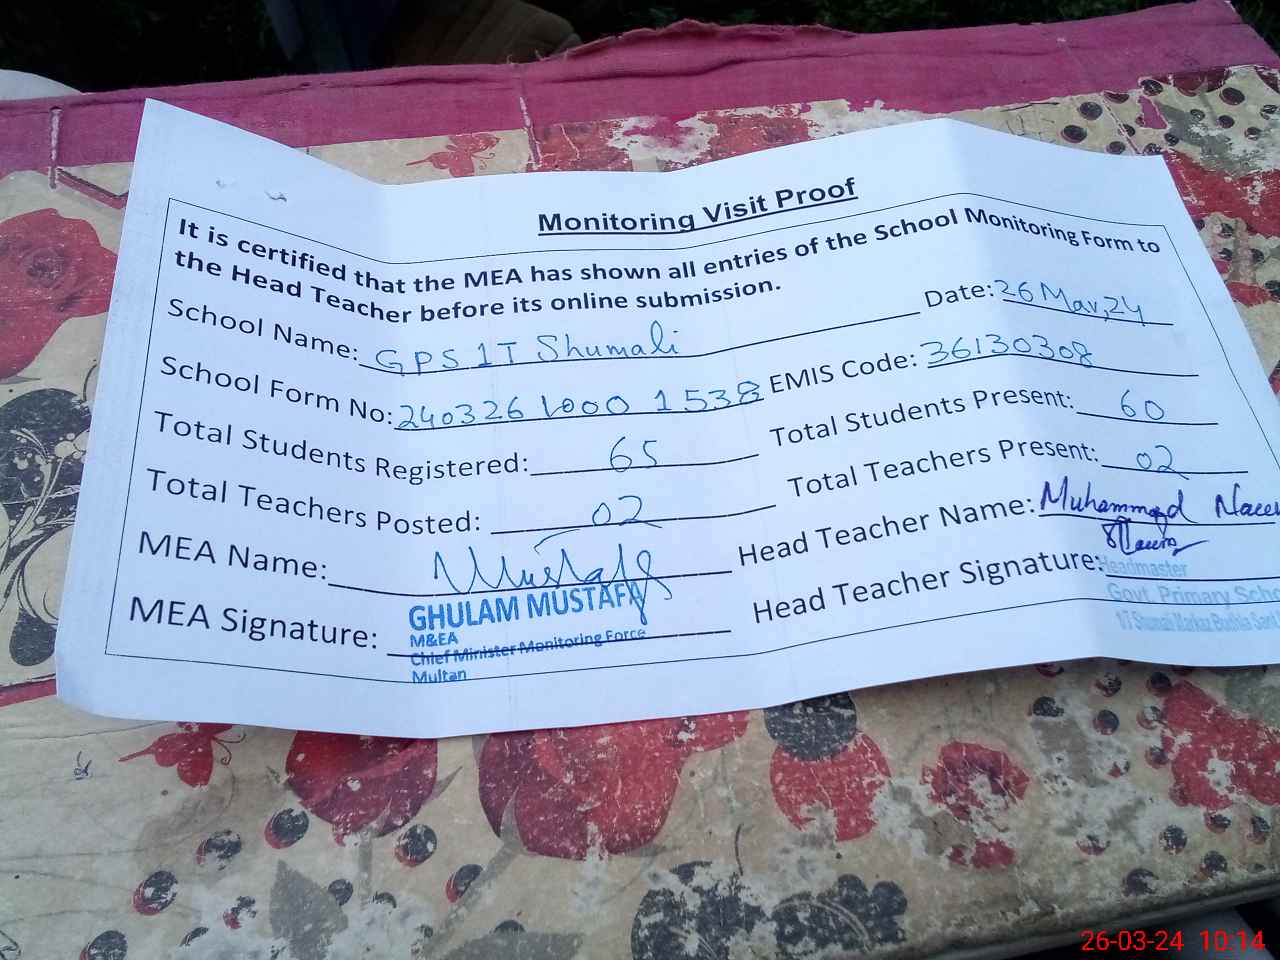 Monitoring Visit Proof
It is certified that the MEA has shown all entries of the School Monitoring Form to
the Head Teacher before its online submission.
School Name: GPS 1T Shumali Date: 26 Mar, 24
School Form No: 240326 1000 1538 EMIS Code: 36130308
Total Students Registered: 65 Total Students Present: 60
Total Teachers Posted: 02 Total Teachers Present: 02
MEA Name: Mustafa Head Teacher Name: Muhammad
MEA Signature: Head Teacher Signature:
GHULAM MUSTAFA
M&EA
Chief Minister Monitoring Force
Multan
Headmaster
Govt. Primary
26-03-24 10:14